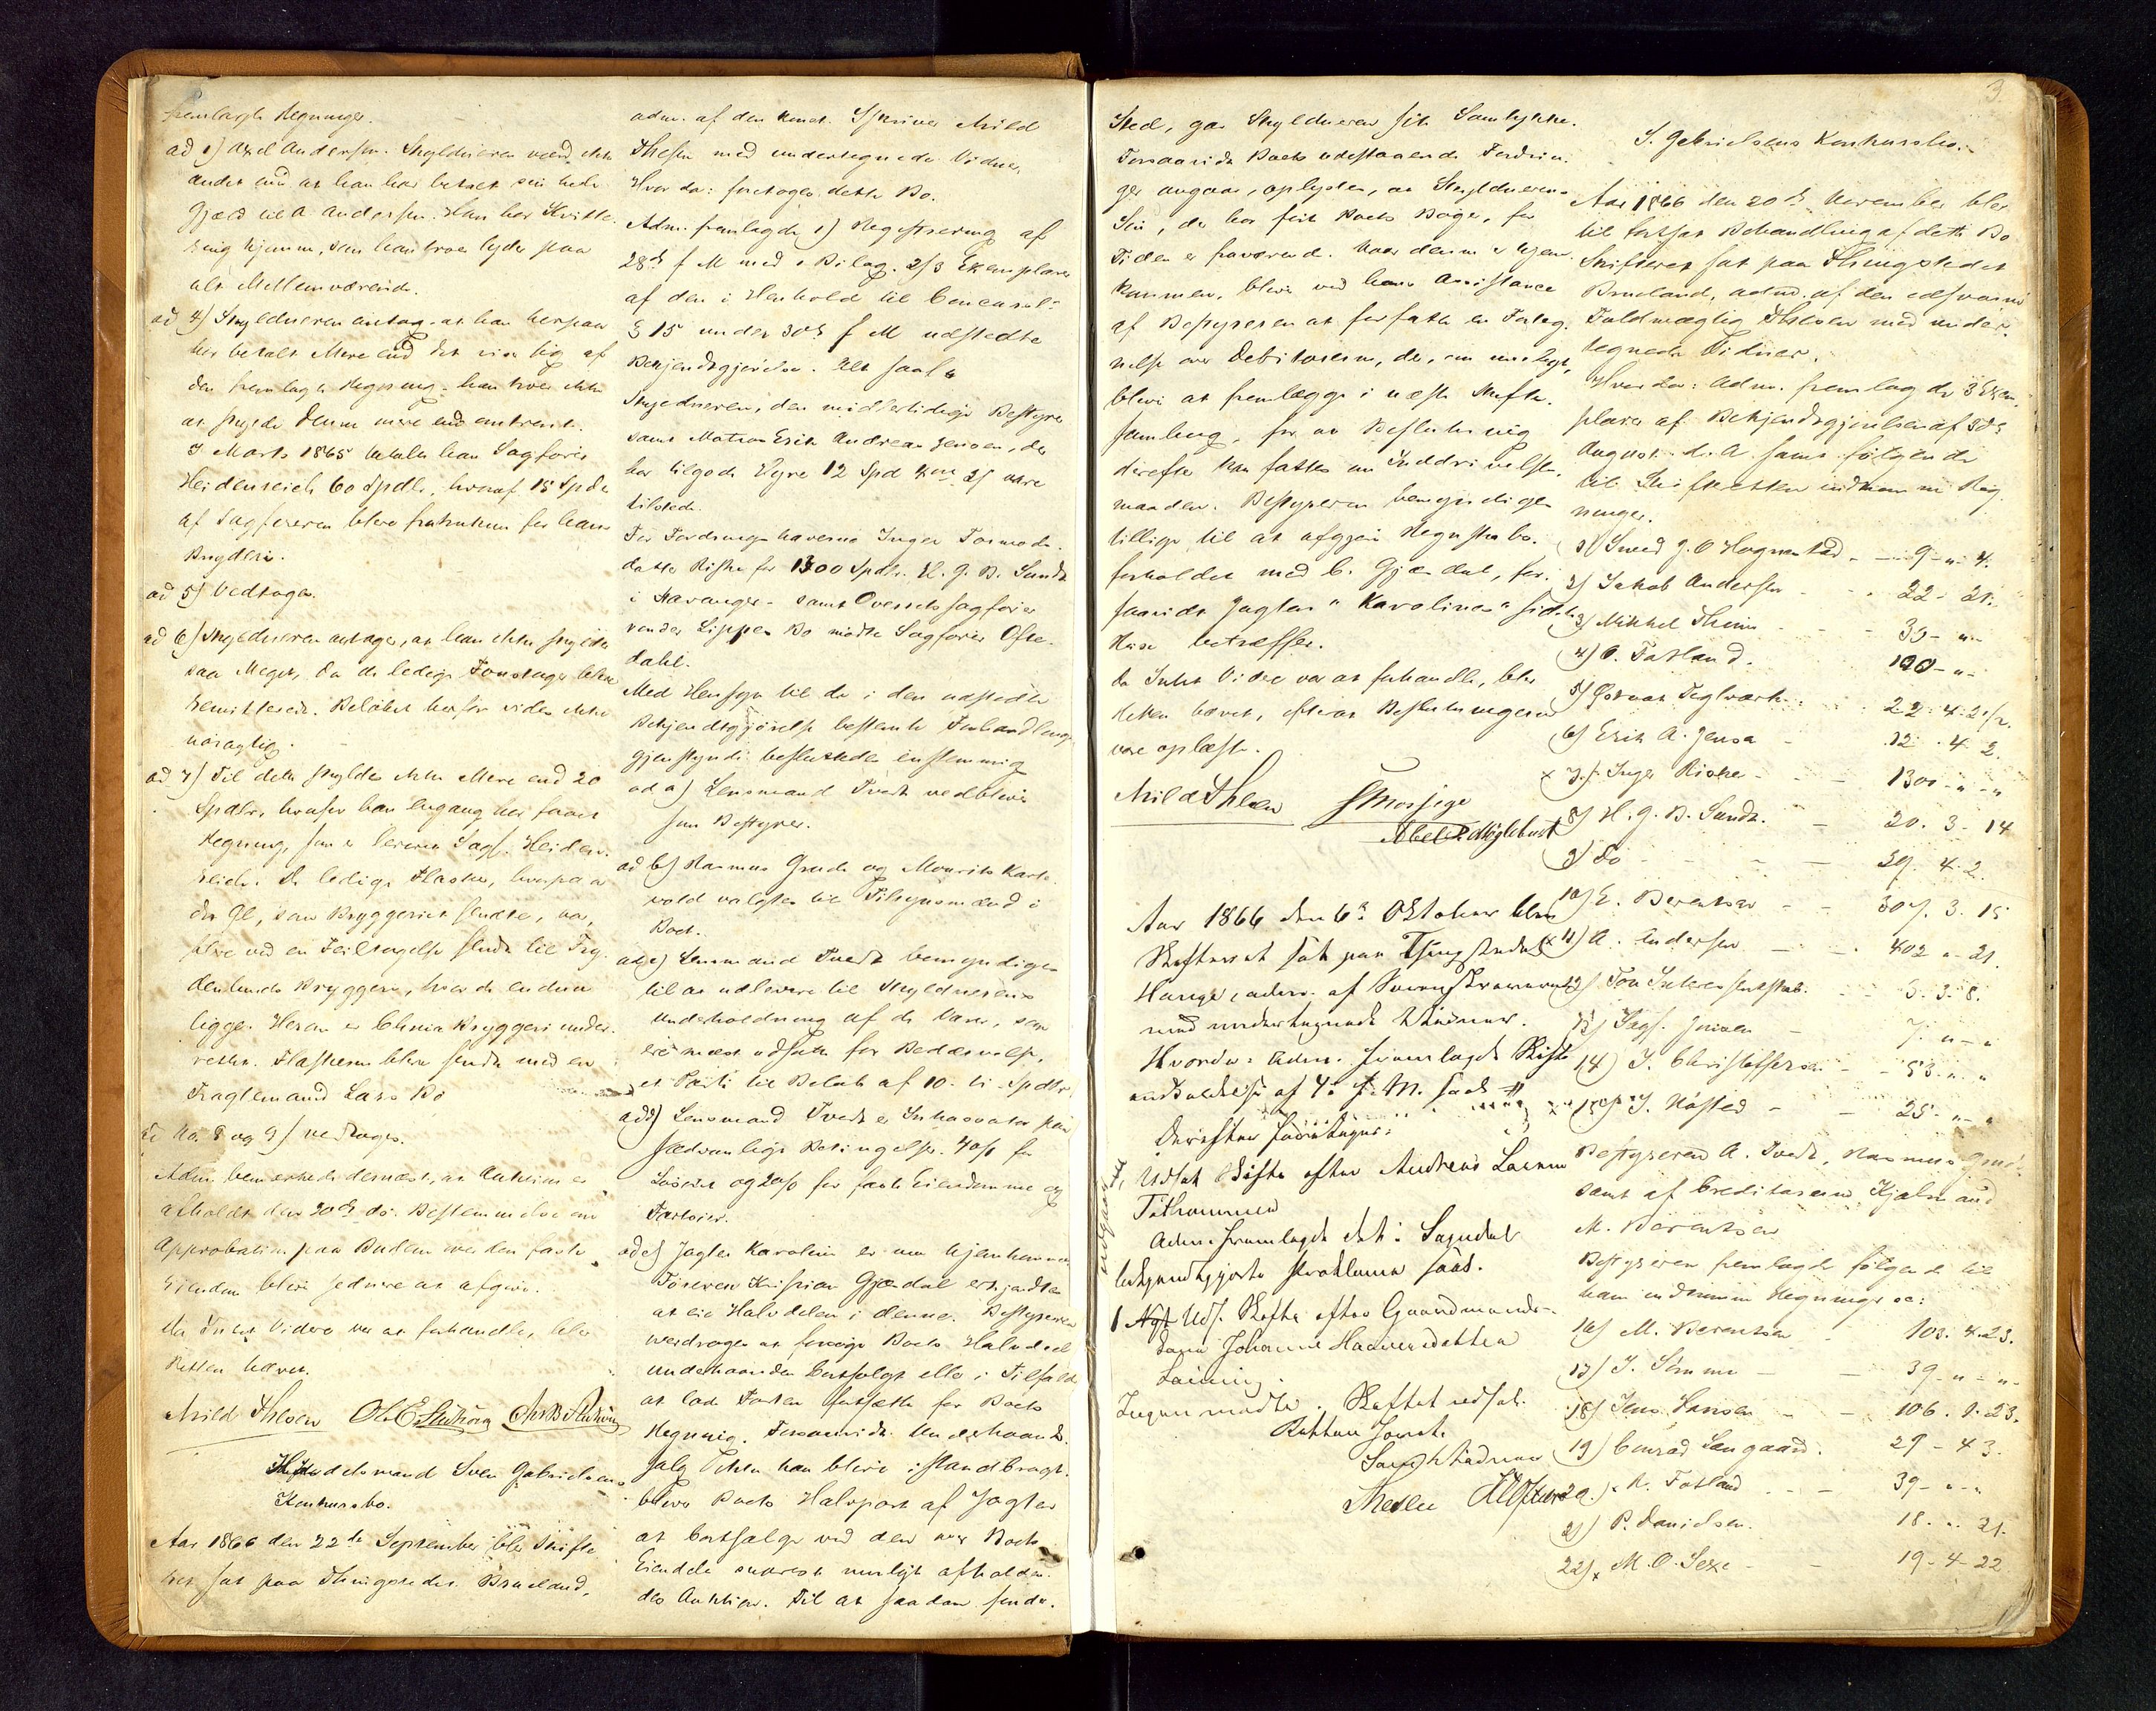 fremlagte Regninger.
ad 1) Axel Andersen. Skyldneren veed ikke
andet end at han har betalt sin hele
Gjæld til A. Andersen. Han har Kvitte-
ring hjemme, som han troer lyder paa
alt Mellemværende.
ad 4) Skyldneren antog at han herpaa
har betalt Mere end det viser sig af
den fremlagte Regning. han troer ikke
at skylde denne mere end omtrent.
I Marts 1865 betalte han Sagfører
Heidenreich 60 Spdlr., hvoraf 15 Spdlr
af Sagføreren bleve fratrukne for hans
Bryderi.
ad 5) Vedtoges.
ad 6) Skyldneren antager, at han ikke skylder
saa Meget, da de ledige Foustager bleve
remitterede. Beløbet herfor vides ikke
nøiagtig.
ad 7) Til dette skyldes ikke Mere end 20
Spdlr., hvorfor han engang har faaet
Regning, som er leveret Sagf. Heiden-
reich. De ledige Flasker, hvorpaa
der Øl, som Bryggeriet sendte, var,
bleve ved en Feiltagelse sendt til Tou
Bryggeri, hvor de endnu
ligge. Herom er Bryggeri under-
rettet. Flaskerne bleve sendt med en
Fragtemand Lars Bø
ad No. 8 og 9) vedtoges.
Adm. bemærkede dernæst, at Auktion er
afholdt den 20de ds. Bestemmelse om
Approbation paa Budene over den faste
Eiendom blev sednere at afgive.
Da Intet Videre var at forhandle, blev
Retten hævet.
Arild Thesen
Handelsmand Sven Gabrielsens
Konkursbo.
Aar 1866 den 22de September blev Skifte-
ret sat paa Thingstedet Brueland,
adm. af den konst. Skriver Arild
Thesen med undertegnede Vidner.
Hvor da: foretoges dette Bo.
Adm. fremlagde 1) Registrering af
28de f M med 1 Bilag. 2) 3 Exemplarer
af den i Henhold til Concursl.
§ 15 under 30de f M udstedte
Bekjendtgjørelse. Alt saal
Skyldneren, den midlertidige Bestyrer
samt Matros Erik Andreas Jensen, der
har tilgode Hyre 12 Spd 4 ort 2 s vare
tilstede.
For Fordringshaverne Inger Tormods-
datter Riske for 1300 Spdlr. H. J. B. Sundt
i Stavanger samt Overretssagfører
von der Lippes Bo mødte Sagfører Ofte-
dahl.
Med Hensyn til de i den udstedte
Bekjendtgjørelse bestemte Forhandlings-
gjenstande besluttedes enstemmig
ad a) Lensmand Tvedt vedbliver
som Bestyrer.
ad b) Rasmus Grude og Mourits Kart-
vold valgtes til Tilsynsmænd i
Boet.
ad c) Lensmand Tvedt bemyndiges
til at udlevere til Skyldnerens
Underholdning af de Varer, som
ere mest udsatte for Bedærvelse,
et Parti til Beløb af 10 - ti - Spdlr.
ad d) Lensmand Tvedt er Inkassator paa
sædvanlige Betingelser. 4 % for
Løsøre og 2 % for faste Eiendomme og
Fartøier.
ad e) Jagten Karoline er nu hjemkommen
Føreren Kristian Gjædal erkjendtes
at eie Halvdelen i denne. Bestyreren
overdroges at forsøge Boets Halvdel
underhaanden bortsolgt eller i Tilfælde
at lade Farten fortsætte for Boets
Regning. Forsaavidt Underhaands-
salg ikke kan blive istandbragt,
bliver Boets Halvpart af Jagten
at bortsælge ved den over Boets
Eiendele snarest muligt afholden-
des Auktion. Til at saadan finder
3.
Sted, gav Skyldneren sit Samtykke.
Forsaavidt Boets udestaaende Fordrin-
ger angaar, oplystes, at Skyldnerens
Søn, der har ført Boets Bøger, for
Tiden er fraværende. Naar denne er hjem-
kommen, bliver ved hans Assistance
af Bestyreren at forfatte en Forteg-
nelse over Debitorerne, der, om muligt,
bliver at fremlægge i næste Skifte-
samling, for at Beslutning
derefter kan fattes om Inddrivelses-
maaden. Bestyreren bemyndiges
tillige til at afgjøre Regnskabs-
forholdet med C. Gjædal, for-
saavidt Jagten "Karolines" sidste
Reise betræffer.
Da Intet Videre var at forhandle, blev
Retten hævet, efterat Beslutningerne
vare oplæste.
Arild Thesen
Aar 1866 den 6te Oktober blev
Skifteret sat paa Thingstedet
Hauge, adm. af Sorenskriveren
med undertegnede Vidner.
Hvorda: Adm. fremlagde Skifte
af 4de f. M. saal
Derefter foretoges:
Udlat Skifte efter Andreas Larsen
Adm. fremlagde det i Sogndal
bekjendtgjorte Proklama saal.
1 Udl. Skifte efter Gaardmands-
Johanne Haaversdatter
Ingen mødte. Skiftet udsat.
Retten hævet.
S. Gabrielsens Konkursbo.
Aar 1866 den 20de November blev
til fortsat Behandling af dette Bo
Skifteret sat paa Thingstedet
Brueland, adm. af den edsvorne
Fuldmægtig Thesen med under-
tegnede Vidner.
Hvor da: Adm. fremlagde 3 Exem-
plarer af Bekjendtgjørelsen af 30te
August d. A. samt følgende
til Skifteretten indkomne Reg-
ninger.
1) Smed J. O Hognestad - 9 - " - 4.
2) Jakob Andersen - 22 - 21.
3) Mikkel Thime - 35 - " -
4) O. Fotland. 100 - " -
5) Teglværk 22. 4. 2 1/2.
6) Erik A. Jensen - 12. 4. 2.
x 7) Inger Riske - 1300 - " - "
8) H. J. B. Sundt. - 20. 3. 14
9) Do - 39. 4. 2.
10) E. Berentsen - 307. 3. 15
x 11) A. Andersen - 402 " 21.
12) Tou Interessentskab. 5. 3. 8.
13) Sagf. Jonsen - 7. " - "
14) J. Christoffersen - 53. " "
x 15) J. Høsted - 25 - " - "
Bestyreren A. Tvedt, Rasmus Grude
samt af Creditorerne, Hjalmand
M. Berentsen
Bestyreren fremlagde følgende til
ham indkomne Regninger sc:
16) M. Berentsen 103. 4. 23.
17) I. Sømme - 39 - " - " -
18) Jens Hansen - 106. 1. 23.
19) Conrad Langaard. 29 - 4 3.
20) A. Fotland - 39 - " - "
21) P. Danielsen. 18. " 21.
22) x M. O. Sexe - 19 - 4 - 22